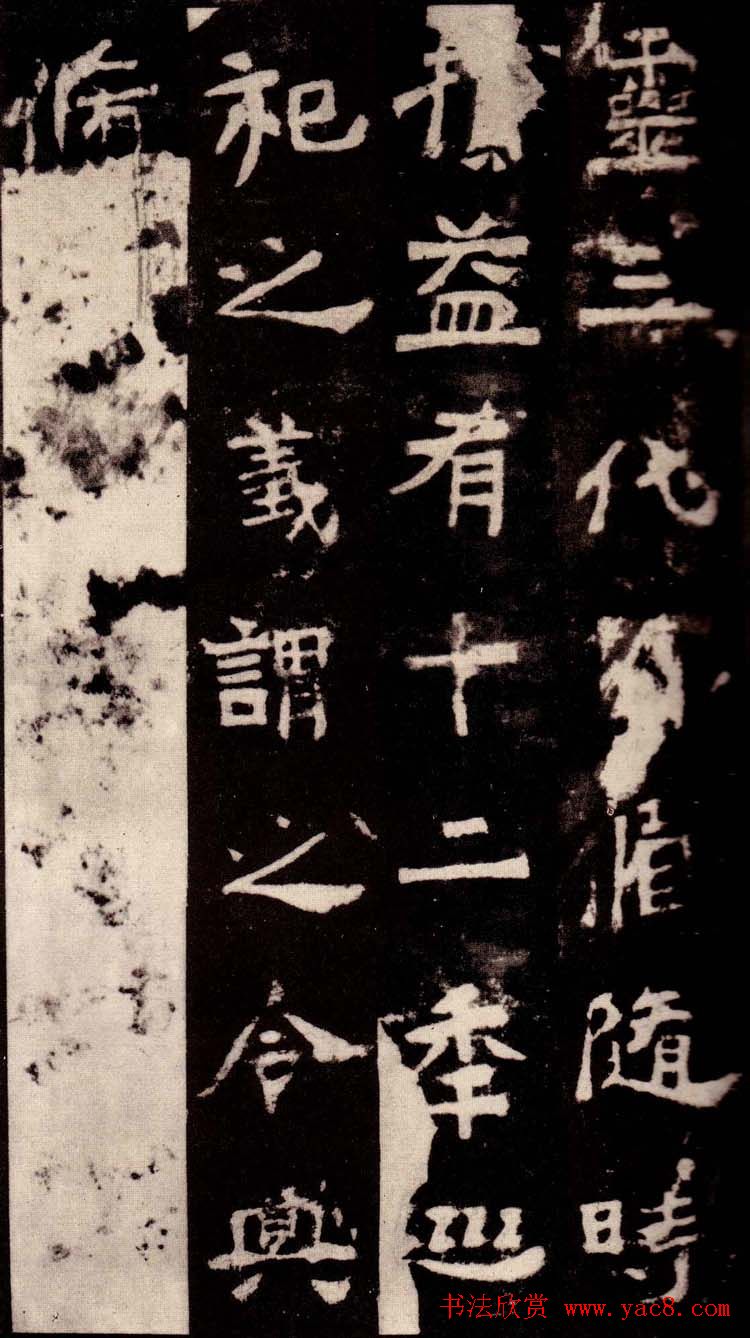 靈三代循隨時
益有十二秊巡
祀之義謂之令典
脩
书法欣赏 www.yac8.com